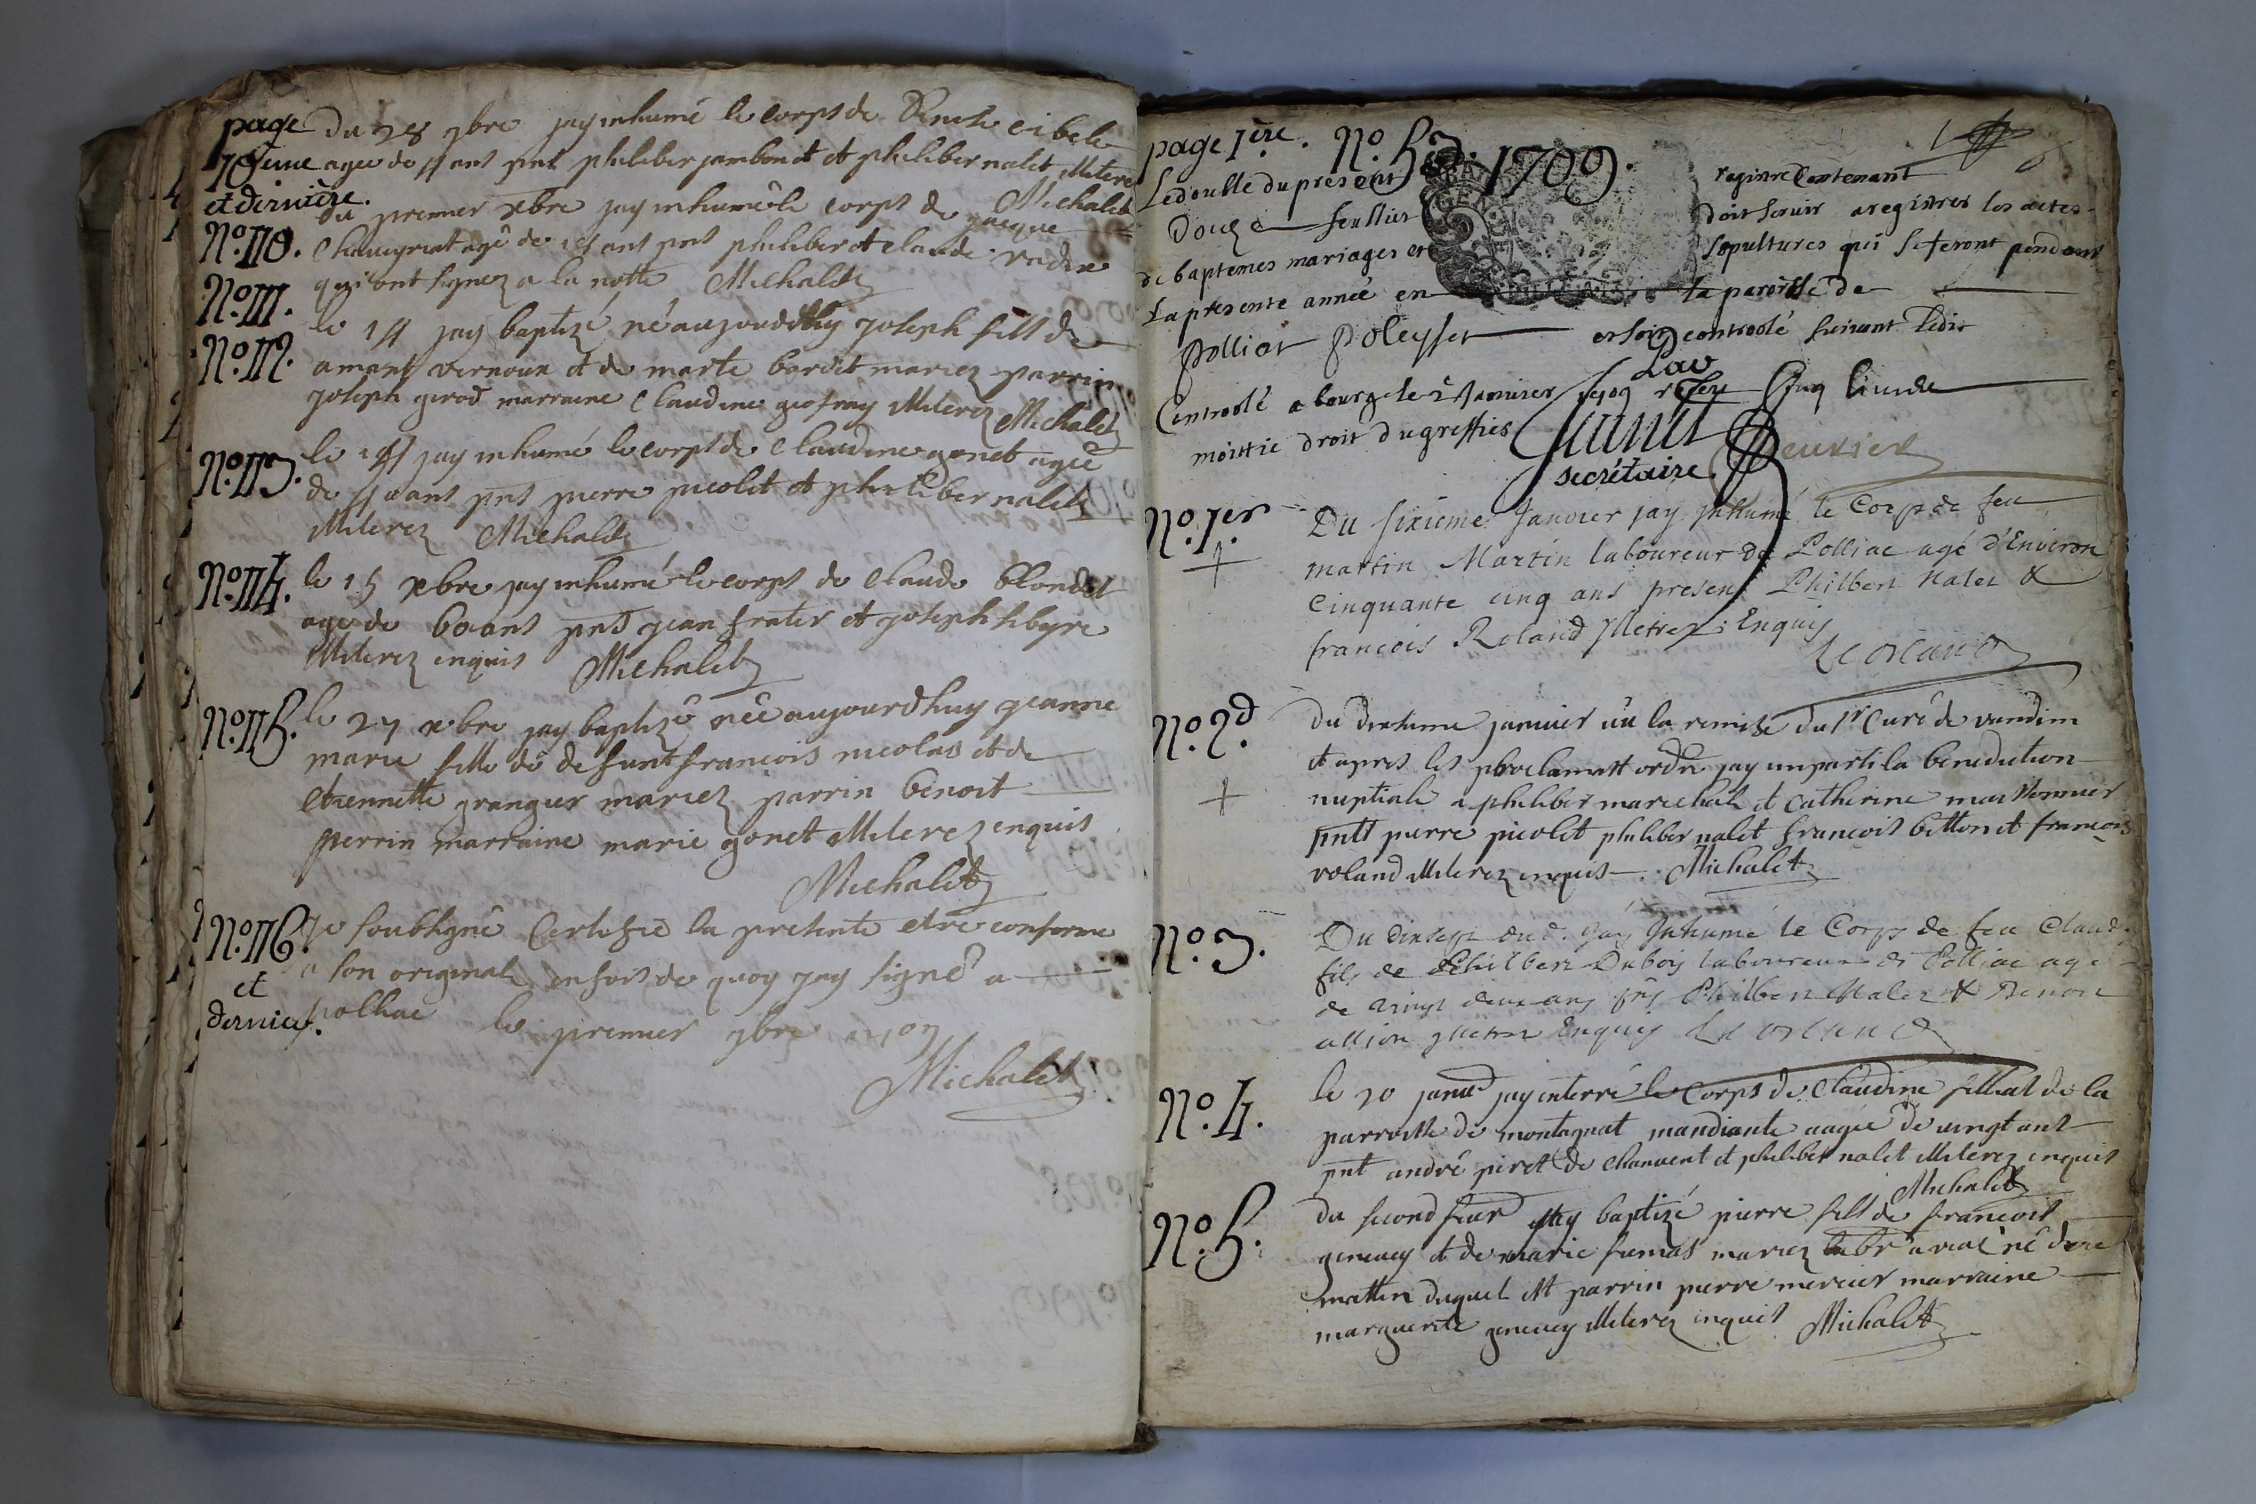 page du 28 9bre jay inhumé le corps de Denise
18eme agée de ans pnts philiber jambon et philiber nalet Illiterez
et dernière. Michalet
No. 110. du premier xbre jay inhumé le corps de jacque
agé de ans pnts philiber et claude
No. 111. qui ont signez a la notte Michalet
No. 112. le 14 jay baptizé né aujourdhuy joseph fils de
amant vernoux et de marte bardet mariez parrin
joseph girod marraine Claudine geofray Illiterez Michalet
No. 113. le jay inhumé le corps de Claudine gonet agée
de ans pnts pierre picolet et philiber nalet
Illiterez Michalet
No. 114. le 15 xbre jay inhumé le corps de Claude blondet
agé de 60 ans pnts jean frater et joseph
Illiterez enquis Michalet
No. 115. le 27 xbre jay baptizé née aujourdhuy jeanne
marie fille de defunt francois nicolas et de
etiennette grangier mariez parrin benoit
perrin marraine marie gonet Illiterez enquis
Michalet
No. 116. Je soubsigné Certifie la presente etre conforme
et a son original, en foy de quoy jay signé a
dernier. polliac le premier 9bre 1709
Michalet
page 1ère. No. 53. 1709.
Le double du present registre Contenant
Douze feuillets doit servir a registrer les actes
de baptemes mariages et sepultures qui se feront pendant
La presente année en la paroisse de
Polliat Poleysset et soit controolé suivant Ledit
Controolé a bourg le 2 Janvier 1709 Cinq livres
moittié droit du greffier
secrétaire
No. 1er. Du sixieme Janvier jay Inhumé le Corps de feu
martin Martin laboureur de Polliac agé d'Environ
Cinquante cinq ans present Philbert Nalet &
francois Roland Illetrez Enquis
No. 2d. du dixhuime janvier vu la remise du Sr Curé de vandein
et apres les proclamatt ordre jay imparti la benediction
nuptiale a philiber marechal et Catherine massonnier
pntt pierre picolet philiber nalet francois bettonet et francois
roland Illiterez enquis Michalet
No. 3. Du dixsept dud. jay Inhumé le Corps de feu Claude
fils de Philbert Duboy laboureur de Polliac agé
de vingt deux ans Philbert Nalet & Benoit
allion Illetrez Enquis
No. 4. le 20 janvr jay interré le Corps de Claudine filliat de la
parroisse de montagnat mandiante aagée de vingt ans
pnt andré piret de Chanvent et philiber nalet Illiterez enquis
Michalet
No. 5. du second feur jay baptizé pierre fils de francois
genevey et de marie fumas mariez né
mattin duquel est parrin pierre mercier marraine
marguerite genevey Illiterez enquis Michalet